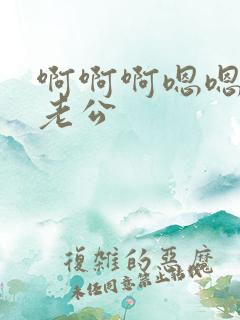 啊啊啊嗯嗯
老公
復雜的惡魔
未经同意禁止转载